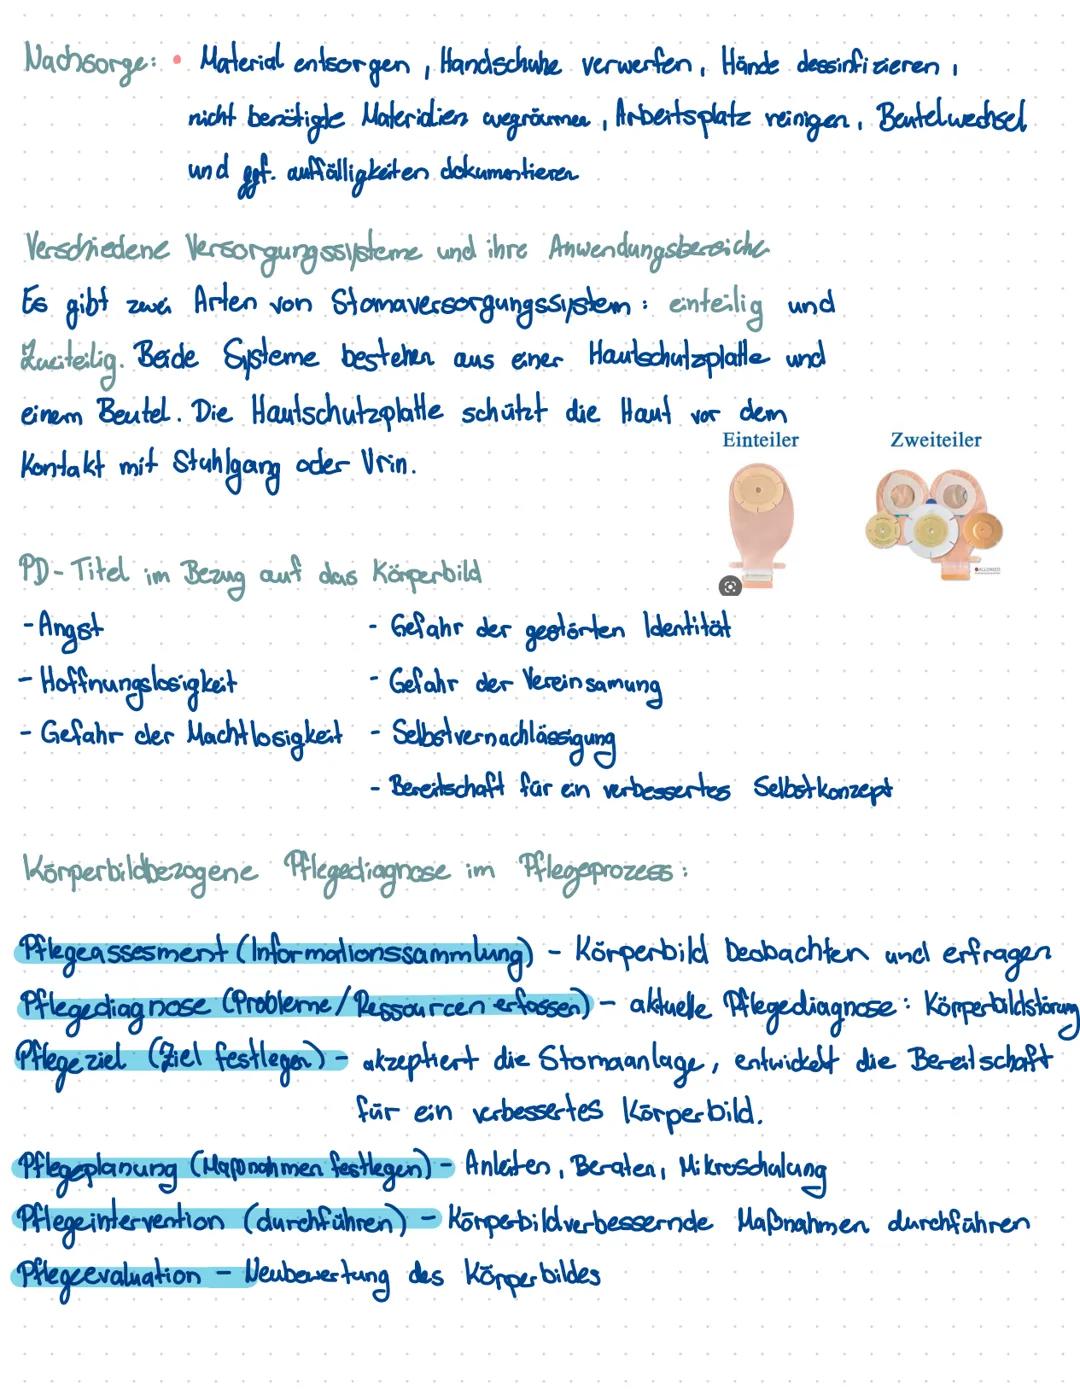 Nachsorge: • Material entsorgen, Handschuhe verwerfen, Hände dessinfizieren,
nicht benötigte Materialien wegräumen, Arbeitsplatz reinigen, Beutelwechsel
und ggf. auffälligkeiten dokumentieren
Verschiedene Versorgungssysteme und ihre Anwendungsbereiche
Es gibt zwei Arten von Stomaversorgungssystem: einteilig und
Zweiteilig. Beide Systeme bestehen aus einer Hautschutzplatte und
einem Beutel. Die Hautschutzplatte schützt die Haut vor dem
Kontakt mit Stuhlgang oder Urin.
Einteiler Zweiteiler
PD-Titel im Bezug auf das Körperbild
- Angst - Gefahr der gestörten Identität
- Hoffnungslosigkeit - Gefahr der Vereinsamung
- Gefahr der Machtlosigkeit - Selbstvernachlässigung
- Bereitschaft für ein verbessertes Selbstkonzept
Körperbildbezogene Pflegediagnose im Pflegeprozess:
Pflegeassesment (Informationssammlung) - Körperbild beobachten und erfragen
Pflegediagnose (Probleme/Ressourcen erfassen) - aktuelle Pflegediagnose: Körperbildstörung
Pflegeziel (Ziel festlegen) - akzeptiert die Stomaanlage, entwickelt die Bereitschaft
für ein verbessertes Körperbild.
Pflegeplanung (Maßnahmen festlegen) - Anleiten, Beraten, Mikroschulung
Pflegeintervention (durchführen) - Körperbildverbessernde Maßnahmen durchführen
Pflegeevaluation - Neubewertung des Körperbildes